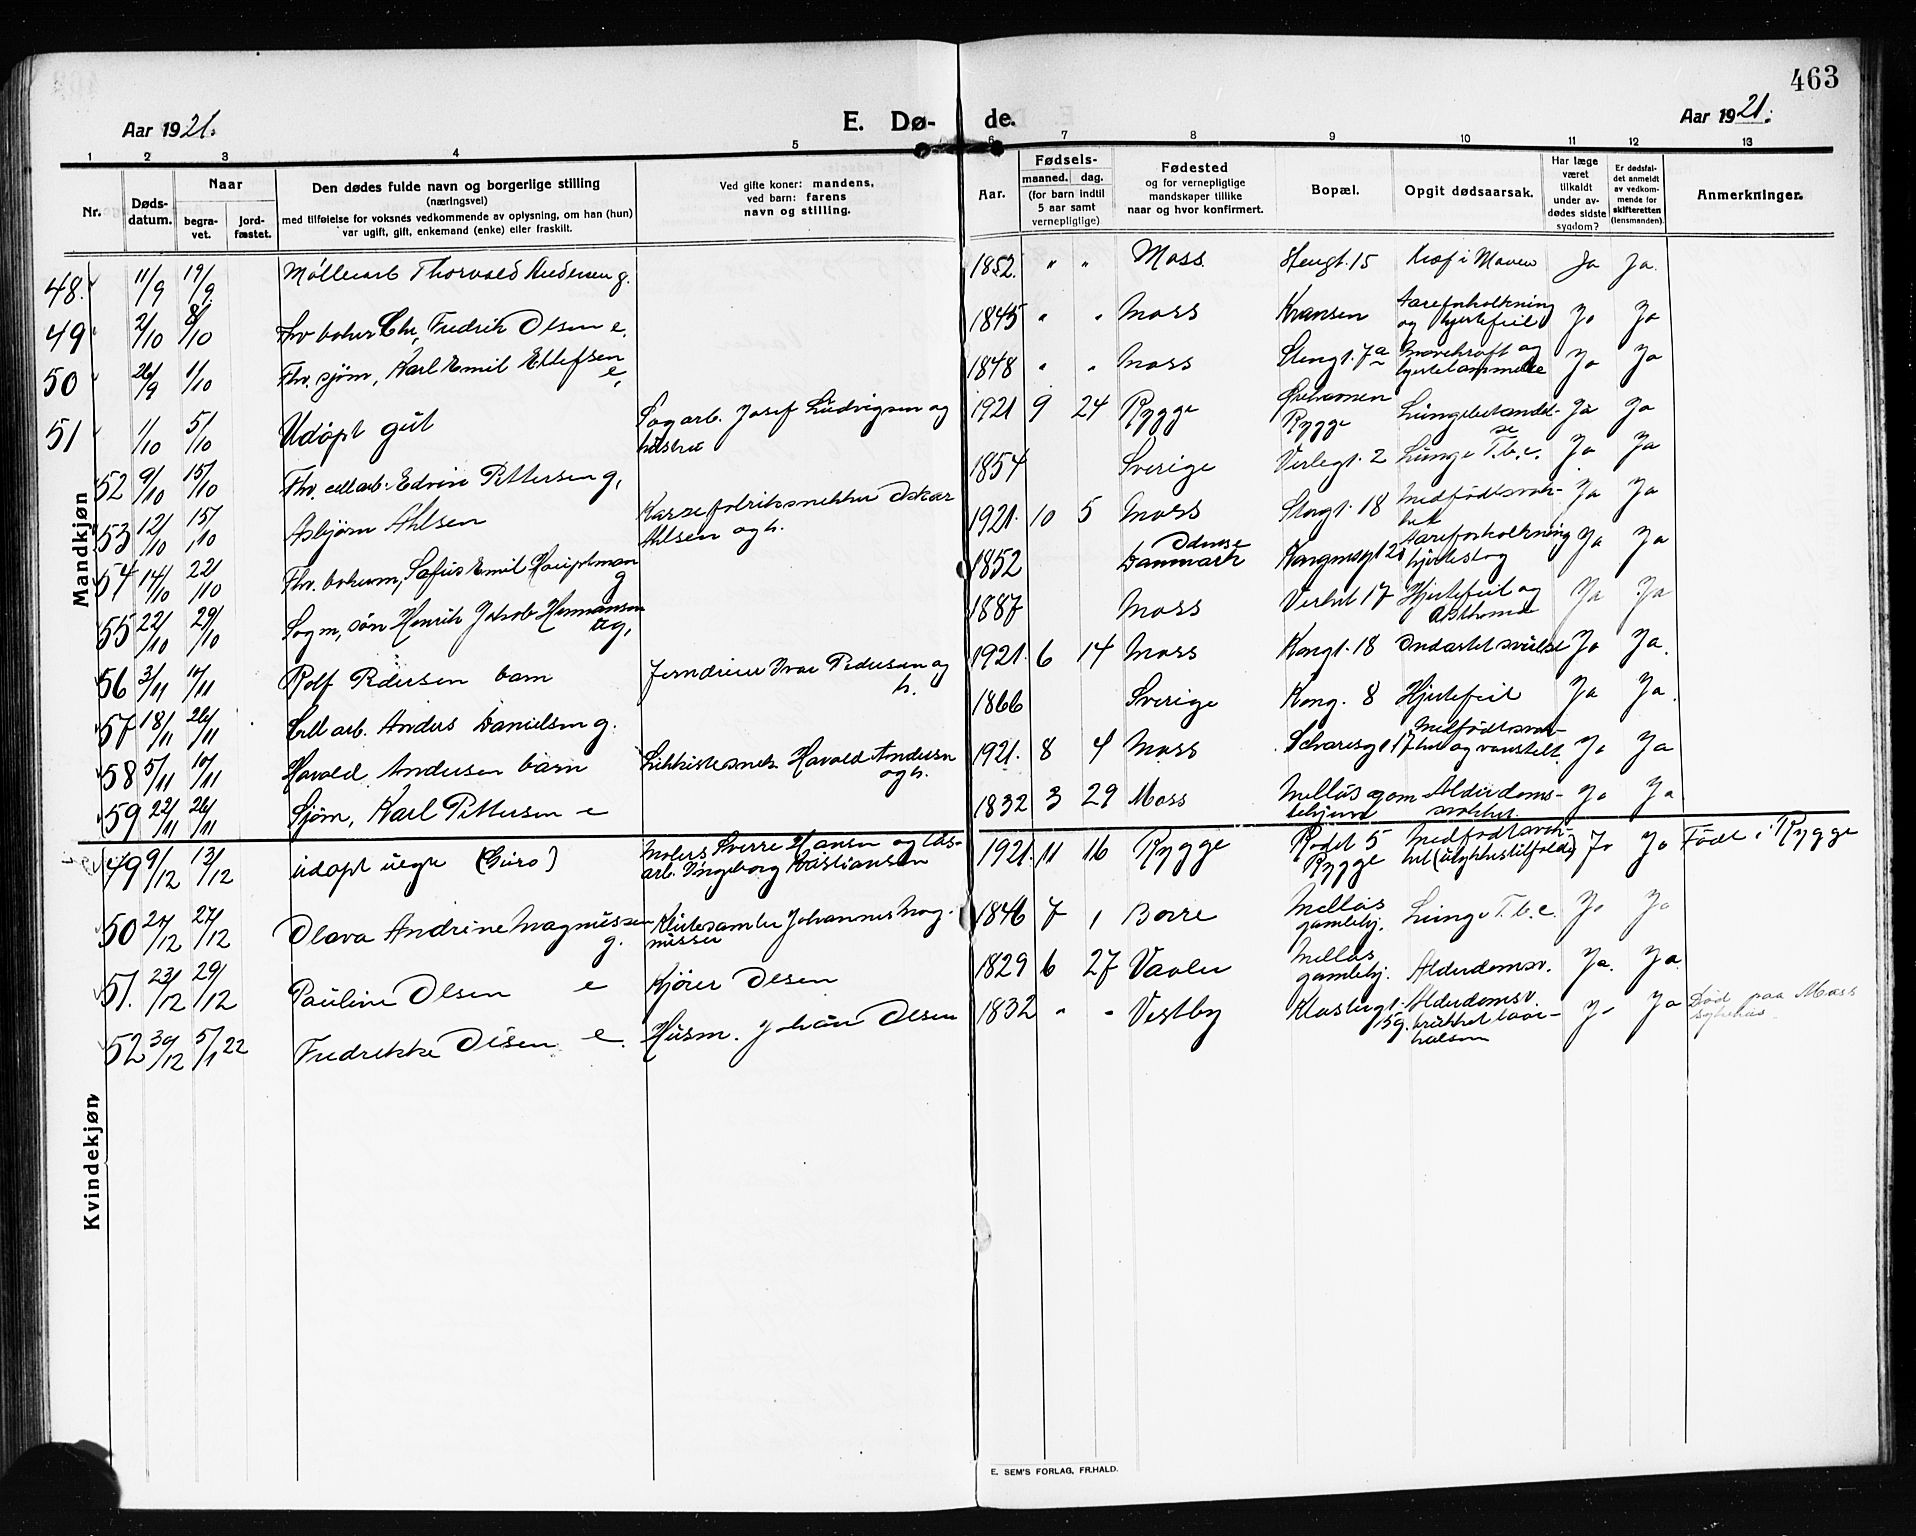 463
Aar 1921.
E. Dø-
de.
Aar 1921.
1 2 3 4 5 6 7 8 9 10 11 12 13
Nr.
Døds-
datum.
Naar
begra-
vet.
jord-
fæstet.
Den dødes fulde navn og borgerlige stilling
(næringsvei)
med tilføielse for voksnes vedkommende av oplysning, om han (hun)
var ugift, gift, enkemand (enke) eller fraskilt.
Ved gifte koner: mandens,
ved barn: farens
navn og stilling.
Aar.
Fødsels-
maaned. dag.
(for barn indtil
5 aar samt
vernepligtige)
Fødested
og for vernepligtige
mandskaper tillike
naar og hvor konfirmert.
Bopæl.
Opgit dødsaarsak.
Har læge
været
tilkaldt
under av-
dødes sidste
sygdom?
Er dødsfal-
det anmeldt
av vedkom-
mende for
skifteretten
(lensmanden).
Anmerkninger.
Mandkjøn
48. 11/9 19/9 Møllearb Thorvald Andersen g. 1852. " " Moss Stengt. 15 Kræf i Maven Ja Ja.
49 2/10 8/10 Fhv baker Chr. Fredrik Olsen e. 1845 " " Moss Kransen Aareforkalkning
og hjertefeil Ja Ja
50 26/9 1/10 Fhv. sjøm, Karl Emil Ellefsen
e, 1848 " " Moss Stengt. 7a Mavekræft og
hjertelammelse Ja Ja
51 1/10 5/10 Udøpt gut Sagarb. Josef Ludvigsen og
hustru 1921 9 24 Rygge Ørehavnen
Rygge Lungebetændel-
se Ja Ja
52 9/10 15/10 Fhv. cellarb. Edvin Pettersen g, 1854 Sverige Verlegt. 2 Lunge T.b.c. Ja Ja
53 12/10 15/10 Asbjørn Ahlsen Kassefabriksnekker Oskar
Ahlsen og h. 1921. 10 5 Moss Storgt. 18 Medfødt svak-
het Ja Ja
54 14/10 22/10 Fhv. bokerm, Sofus Emil Hauptman
g 1852 Odense
Danmark Kongensgt 28 Aareforkalkning
hjerteslag Ja Ja
55 22/10 29/10 Sogm, søn Henrik Jakob Hermansen
ug, 1887 Moss Verket 17 Hjertefeil og
Asthma Ja Ja
56 3/11 10/11 Rolf Pedersen barn Jerndreier Ivar Pedersen og
h. 1921. 6 14 Moss Kongt. 18 Ondartet svulst Ja Ja.
57 18/11 26/11 Cell arb. Anders Danielsen g. 1866 Sverige Kong. 8 Hjertefeil Ja Ja.
58 5/11 10/11 Harald Andersen barn Likkistesnek. Harald Andersen
og h. 1921. 8 4 Moss 17 Medfødt svak-
het og vanstelt. Ja Ja
59 22/11 26/11 Sjøm, Karl Pettersen e 1832 3 29 Moss Melløs gam
lehjem Alderdoms-
svakhet. Ja Ja
Kvindekjøn
49 9/12 13/12 udøpt uegte (Guro) Molers. Sverre Hansen og
arb. Ingeborg Kristiansen 1921. 11 16 Rygge Rødst 5
Rygge Medfødt svak-
het (ulykkestilfælde) Ja Ja Født i Rygge
50 21/12 27/12 Olava Andrine Magnussen
g. Klutesamler Johannes Mag-
nussen 1846 7 1 Borre Melløs
gamlehj. Lunge T.b.c. Ja Ja
51. 23/12 29/12 Pauline Olsen e Kjører Olsen 1829 6 27 Vaaler Melløs
gamlehj. Alderdomsv. Ja. Ja.
52 30/12 5/1 22 Fredrikke Olsen e. Husm. Johan Olsen 1832 " " Vestby Klostergt.
15g. Alderdomsv.
brukket laar-
halsen Ja Ja Død paa Moss
sykehus.
E. SEM'S FORLAG, FR.HALD.